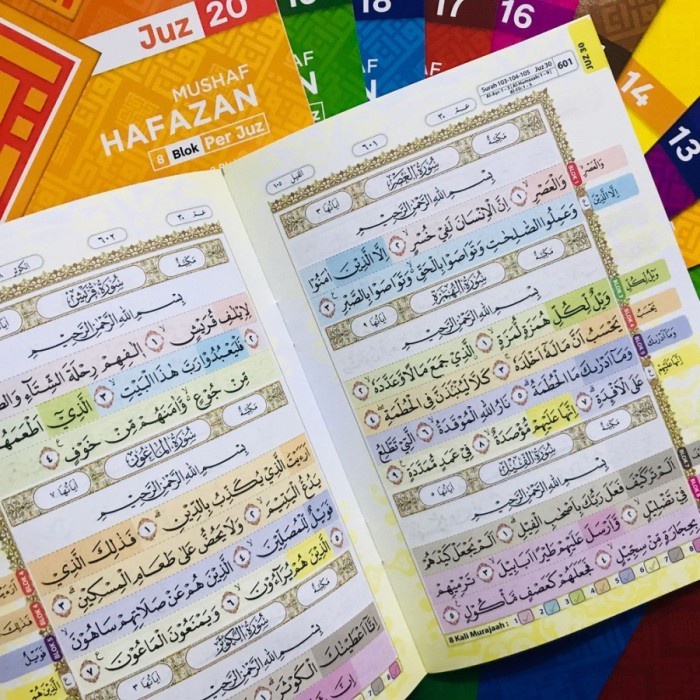 Juz 20
MUSHAF
HAFAZAN
8 Blok Per Juz
18
17
16
14
13
Surah 103-104-105 Juz 30
601
JUZ 30
عم ٣٠
٦٠١
الفيل ١٠٥
مكية
سورة العصر
آياتها ٣
بسم الله الرحمن الرحيم
والعصر ١ ان الانسان لفي خسر ٢ الا الذين امنوا
وعملوا الصلحت وتواصوا بالحق وتواصوا بالصبر ٣
مكية
سورة الهمزة
آياتها ٩
بسم الله الرحمن الرحيم
ويل لكل همزة لمزة ١ الذي جمع مالا وعدده ٢
يحسب ان ماله اخلده ٣ كلا لينبذن في الحطمة ٤
وما ادرىك ما الحطمة ٥ نار الله الموقدة ٦ التي تطلع
على الافئدة ٧ انها عليهم مؤصدة ٨ في عمد ممددة ٩
مكية
سورة الفيل
آياتها ٥
بسم الله الرحمن الرحيم
الم تر كيف فعل ربك باصحب الفيل ١ الم يجعل كيدهم
في تضليل ٢ وارسل عليهم طيرا ابابيل ٣ ترميهم
بحجارة من سجيل ٤ فجعلهم كعصف مأكول ٥
8 Kali Murajaah : 1 2 3 4 5 6 7 8
والعصر
الا الذين
ويل لكل
يحسب
وما ادرىك
انها عليهم
عم ٣٠
٦٠٢
مكية
سورة قريش
بسم الله الرحمن الرحيم
لايلف قريش ١ الفهم رحلة الشتاء
٢ فليعبدوا رب هذا البيت ٣ الذي اطعمهم
من جوع وامنهم من خوف ٤
مكية
سورة الماعون
آياتها ٧
بسم الله الرحمن الرحيم
ارءيت الذي يكذب بالدين ١ فذلك الذي
يدع اليتيم ٢ ولا يحض على طعام المسكين ٣
فويل للمصلين ٤ الذين هم عن صلاتهم ساهون
٥ الذين هم يراءون ٦ ويمنعون الماعون ٧
مكية
سورة الكوثر
آياتها ٣
بسم الله الرحمن الرحيم
انا اعطينك الكوثر